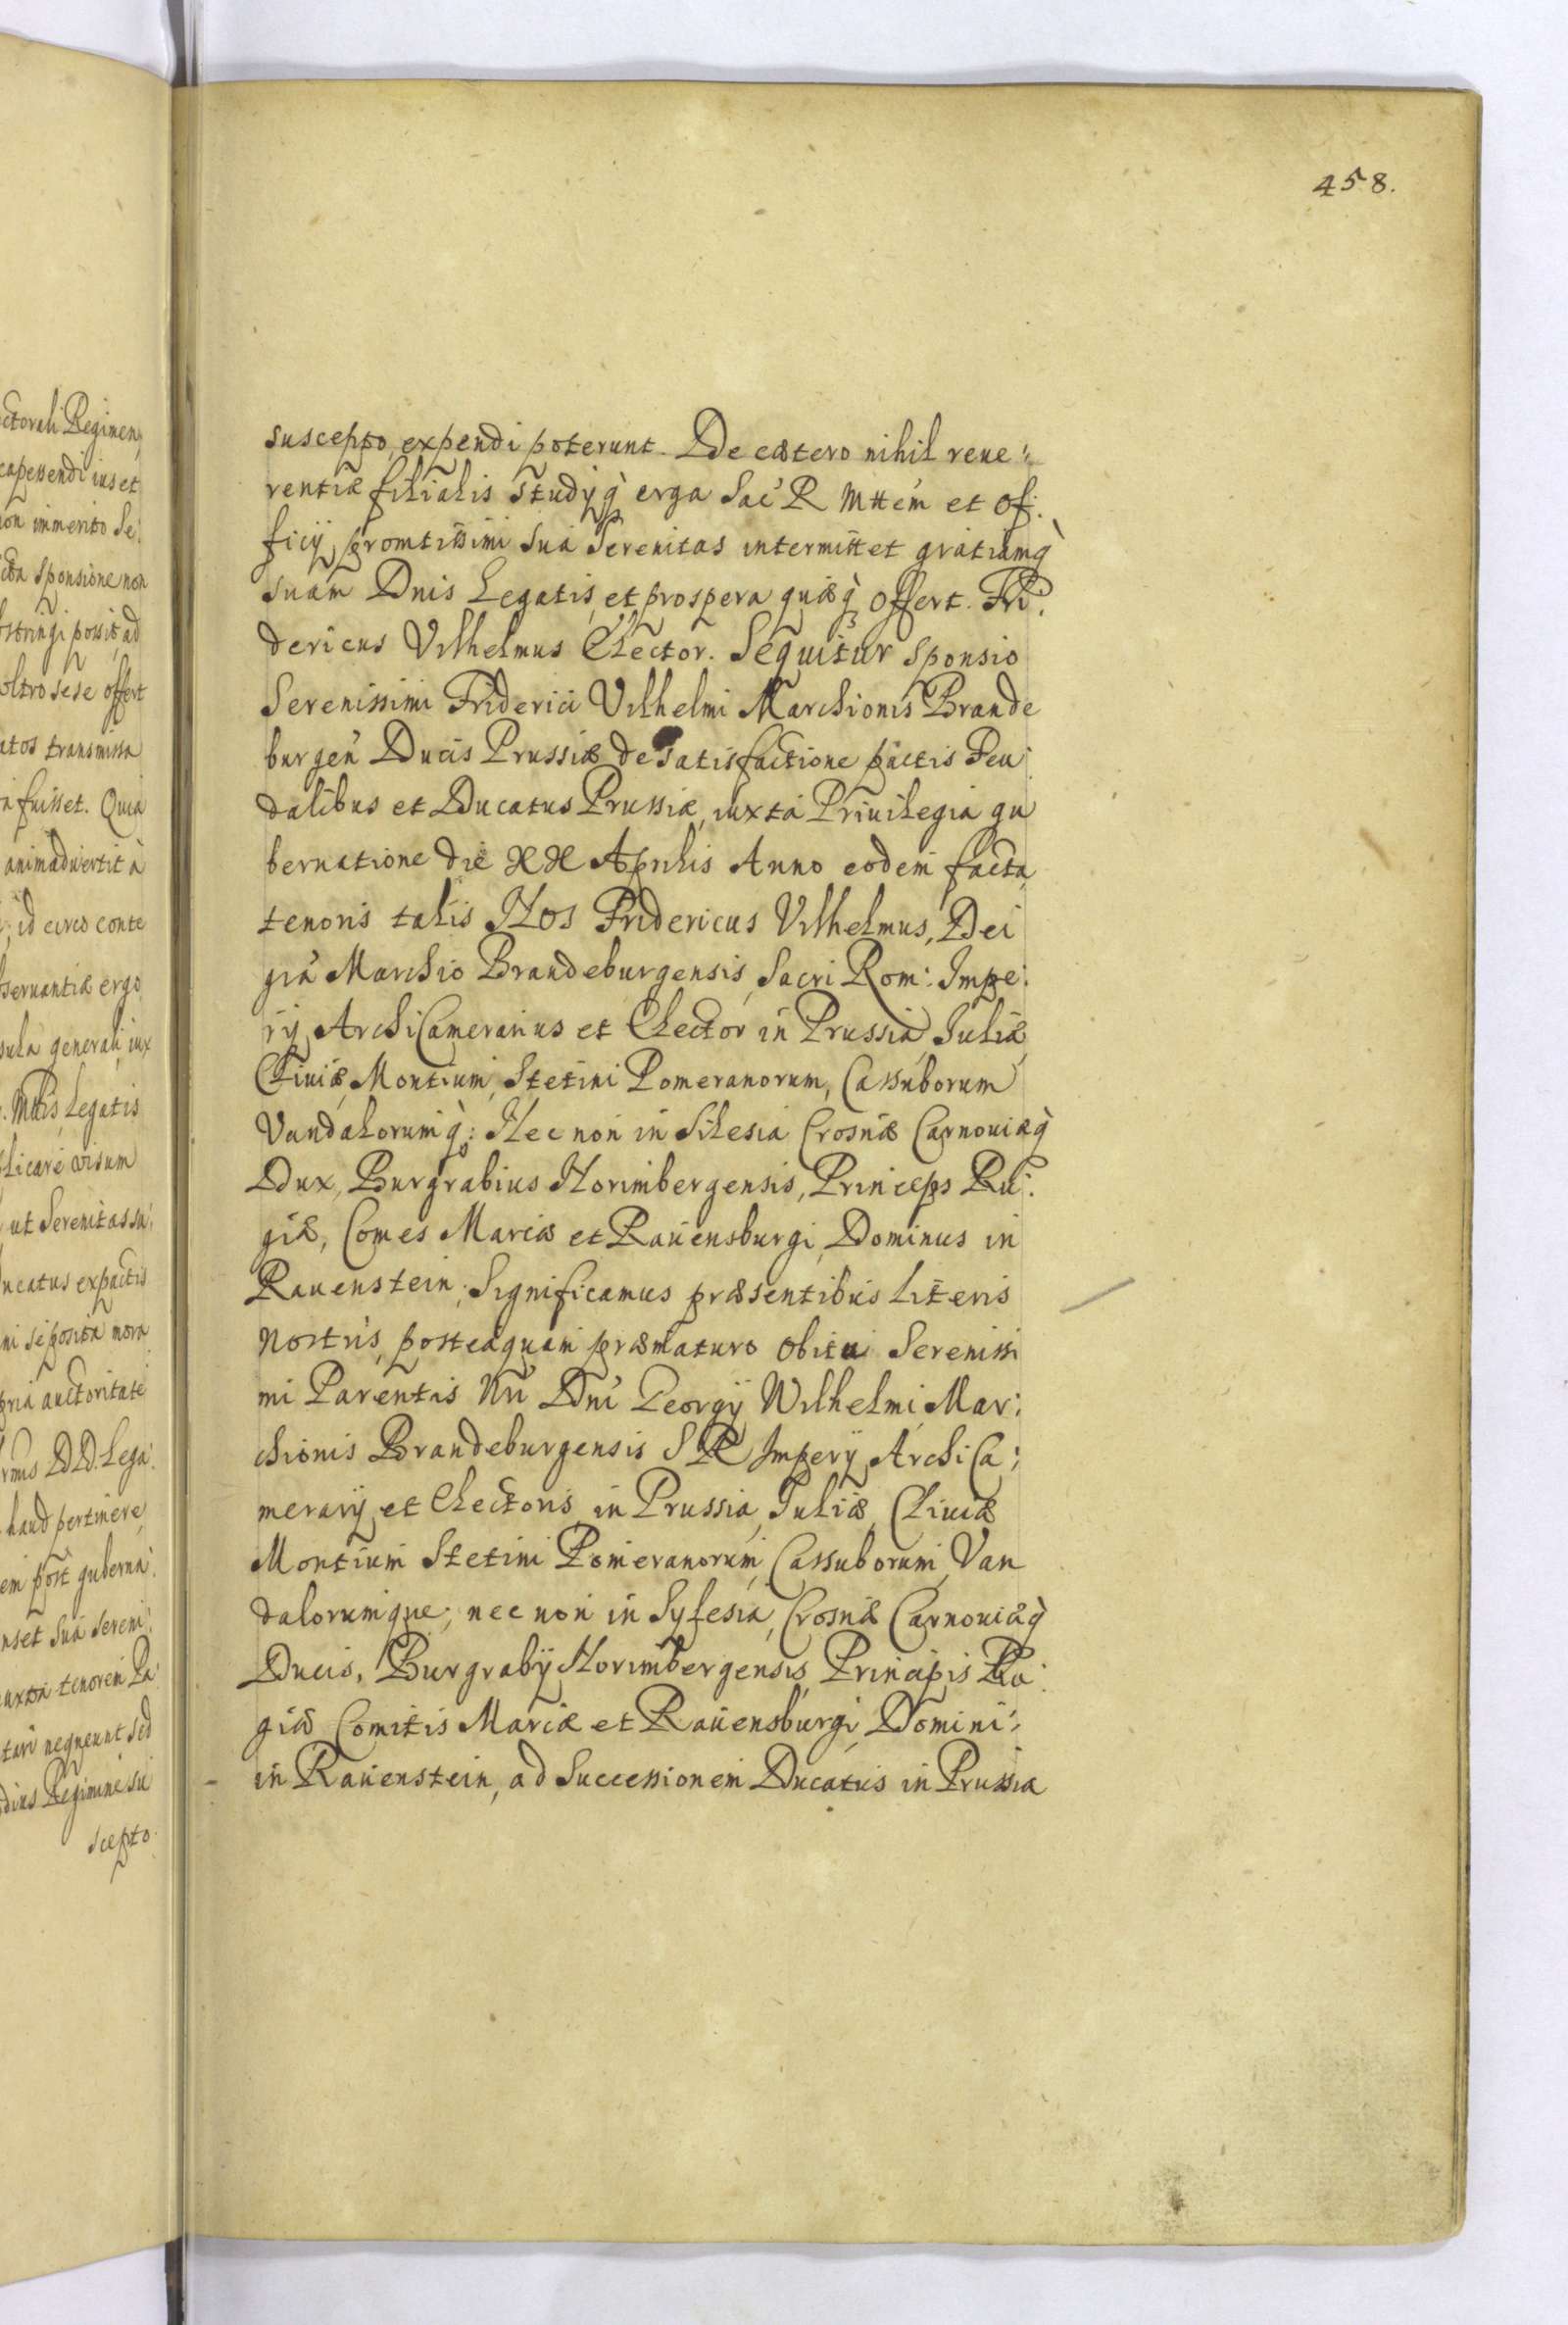 458.
ctorali Regimen,
capessendi ius et
non immerito Se:
icta sponsione non
stringi possit, ad
oltro sese offert
atos transmissa
a fuisset. Quia
animaduertit à
id circo conte
seruantiæ ergo
sula generali, iux
Mttis Legatis
licare visum
ut Serenitas su:
ucatus ex pactis
ni seposita mora
pria auctoritate
rmis DD. Lega:
haud pertinere,
em post guberna:
nset Sua Sereni:
uxta tenorem Pa:
tari nequeunt sed
dius Regimine su
scepto.
suscepto, expendi poterunt. De cætero nihil reue:
rentiæ filialis studÿq̀ erga Sac R Mttem et of:
ficÿ promtissimi Sua Serenitas intermittet gratiamq̀
suam Dnis Legatis, et prospera quæq̀ offert. Fri:
dericus Vilhelmus Elector. Sequitur sponsio
Serenissimi Friderici Vilhelmi Marchionis Brande
burgen Ducis Prussiæ de satisfactione pactis Feu:
dalibus et Ducatus Prussiæ, iuxta Priuilegia gu
bernatione die XX Aprilis Anno eodem facta,
tenoris talis Nos Fridericus Vilhelmus, Dei
gra Marchio Brandeburgensis, Sacri Rom: Impe:
rÿ ArchiCamerarius et Elector in Prussia, Iuliæ,
Cliuiæ, Montium, Stetini Pomeranorum, Cassuborum
Vandalorumq̀: Nec non in Silesia Crosnæ Carnouiæq̀
Dux, Burgrabius Norimbergensis, Princeps Ru:
giæ, Comes Marciæ et Rauensburgi, Dominus in
Rauenstein, Significamus præsentibus literis
nostris, posteaquam præmaturo obitui Serenissi
mi Parentis Nri Dni Georgÿ Wilhelmi, Mar:
chionis Brandeburgensis S R Imperÿ ArchiCa:
merarÿ et Electoris in Prussia, Iuliæ, Cliuiæ
Montium Stetini Pomeranorum, Cassuborum, Van
dalorumque, nec non in Sylesia, Crosnæ Carnouiæq̀
Ducis, Burgrabÿ Norimbergensis, Principis Ru:
giæ Comitis Marciæ et Rauensburgi, Domini
in Rauenstein, ad Successionem Ducatus in Prussia